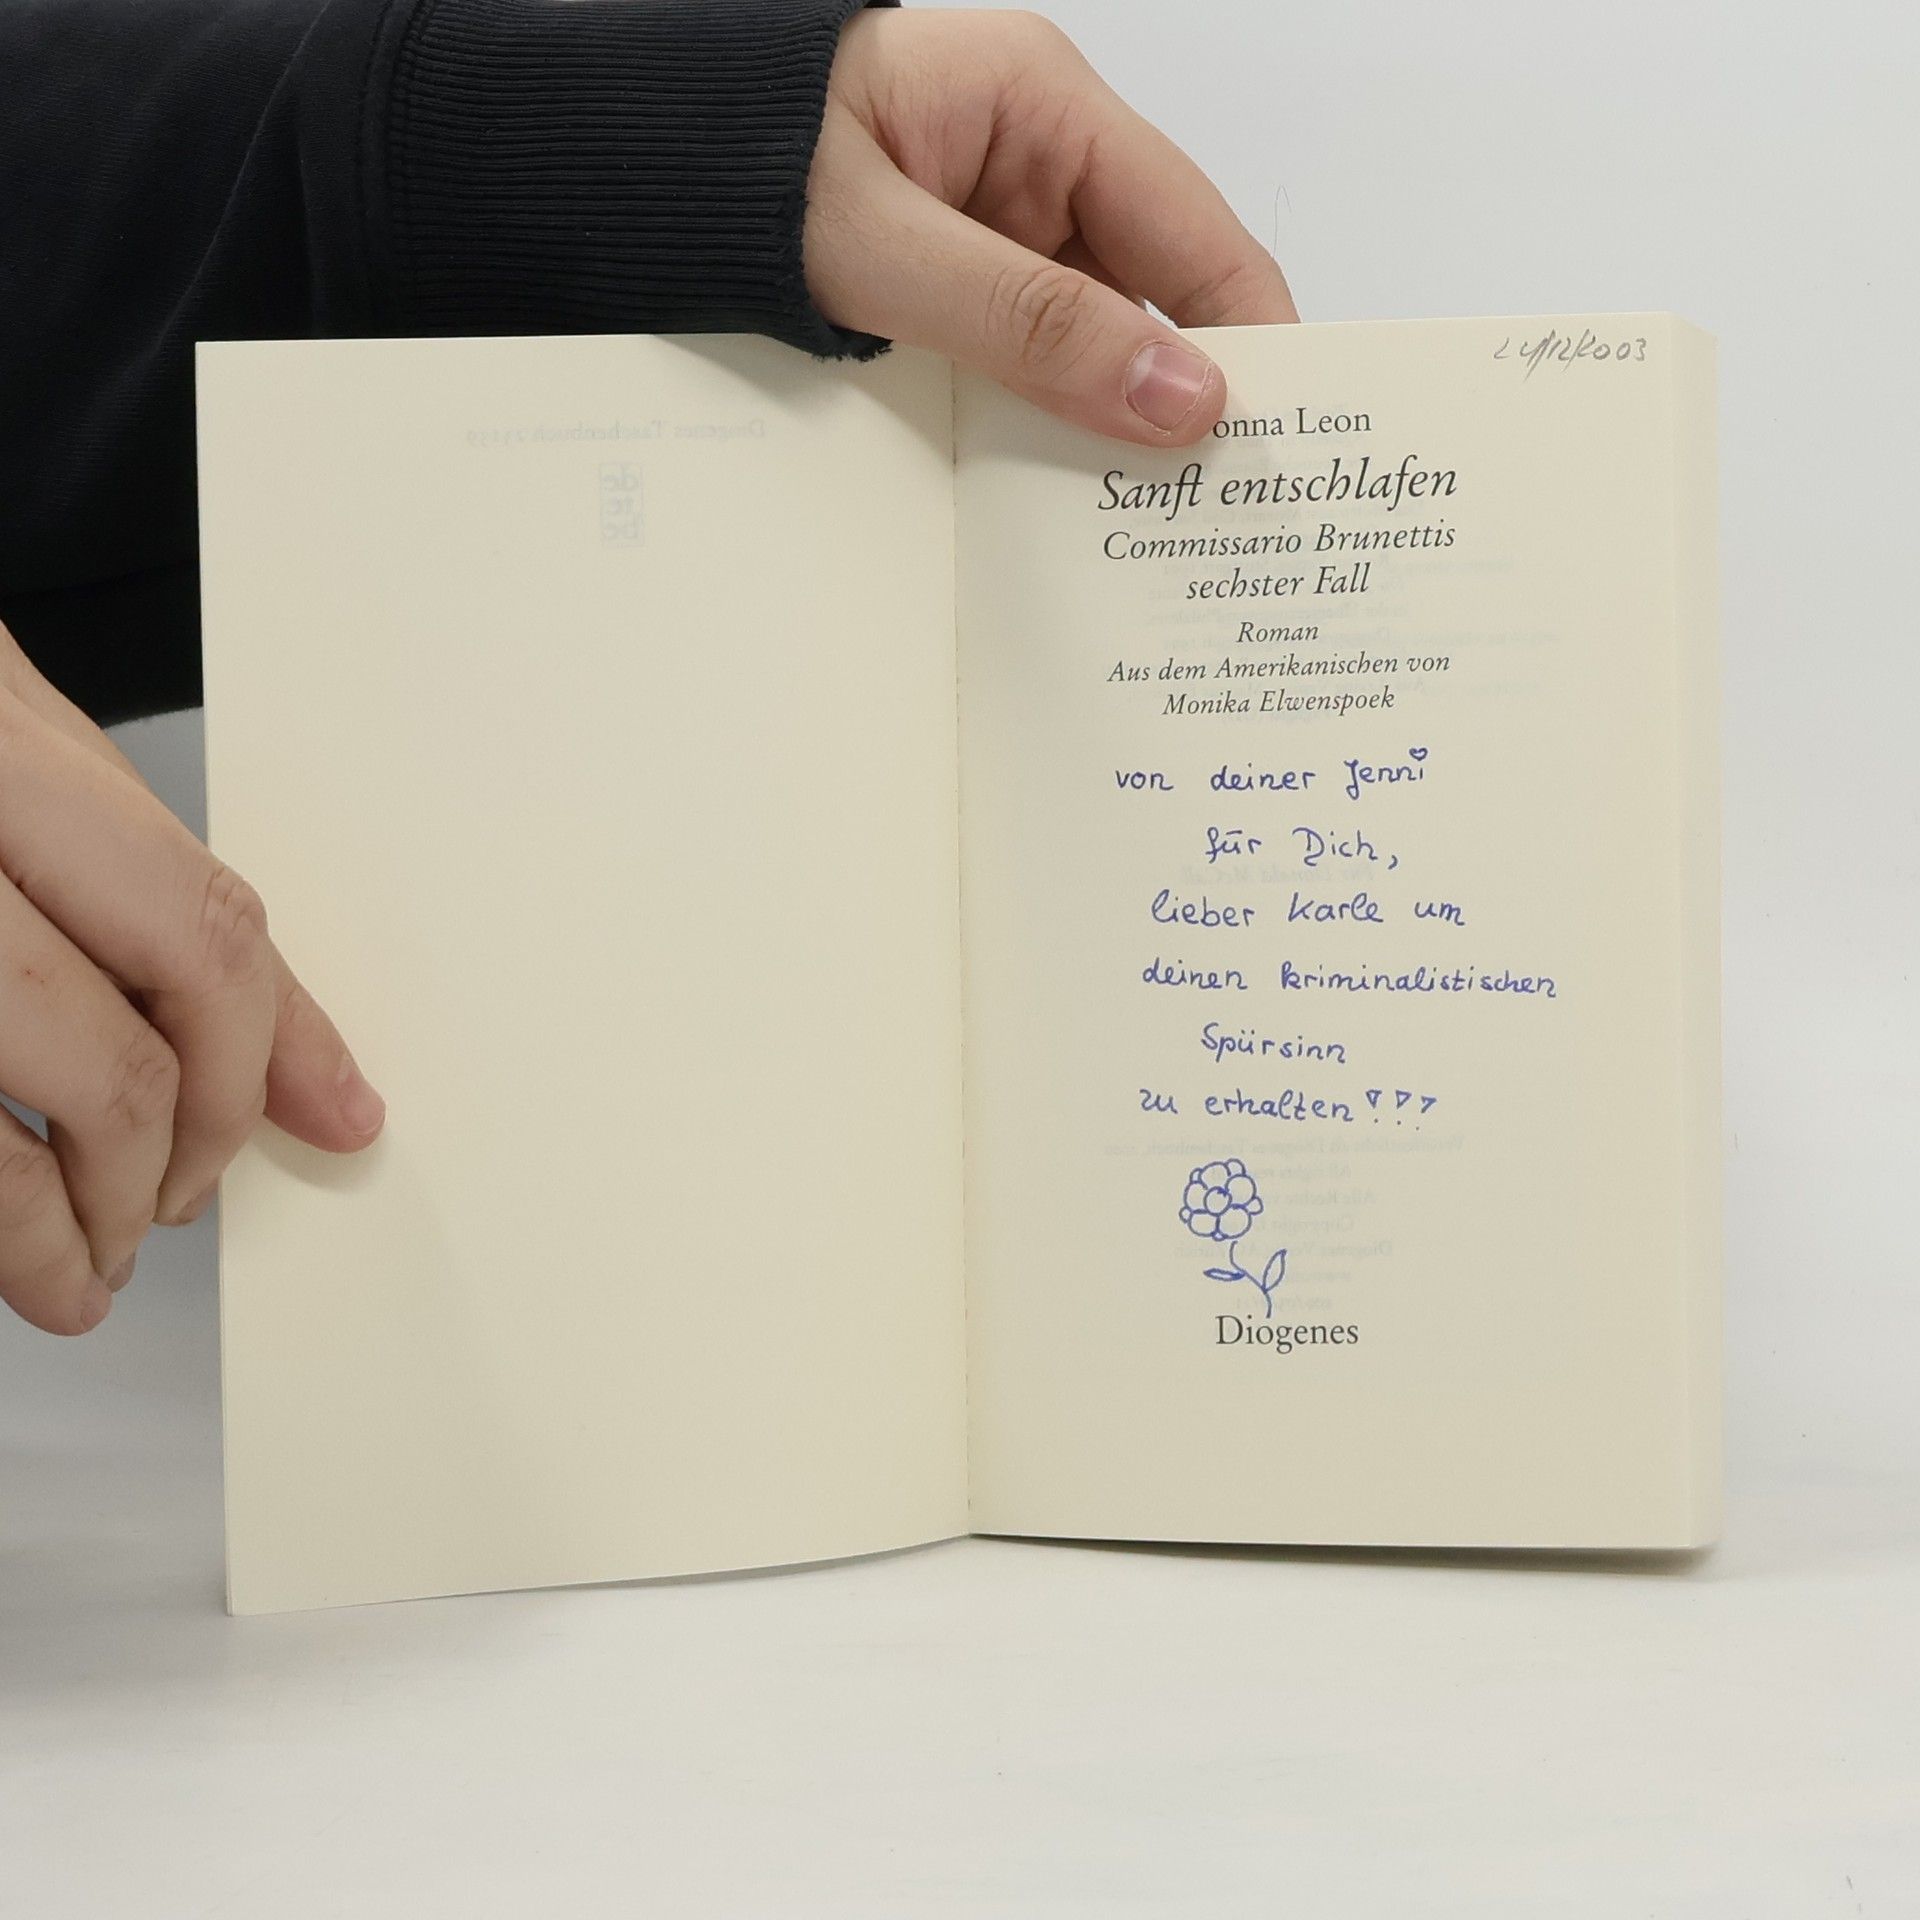 24/12/2003
onna Leon
Sanft entschlafen
Commissario Brunettis
sechster Fall
Roman
Aus dem Amerikanischen von
Monika Elwenspoek
von deiner Jenni
für Dich,
lieber Karle um
deinen kriminalistischen
Spürsinn
zu erhalten!!!
Diogenes
Diogenes Taschenbuch
de
te
be